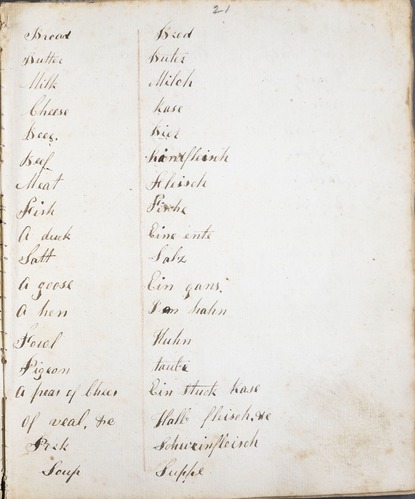 21
Bread Bred
Butter Buter
Milk Milch
Cheese Kase
Beer. Bier
Beef Rindfleisch
Meat Fleisch
Fish Fische
A duck Eine ente
Salt Salz
A goose Ein gans.
A hen hahn
Fowl Huhn
Pigeon taube
A peas of Chees Ein stuck Kase
of veal, &c Kalb fleisch, &c
Pork Schweinfleisch
Soup Suppe